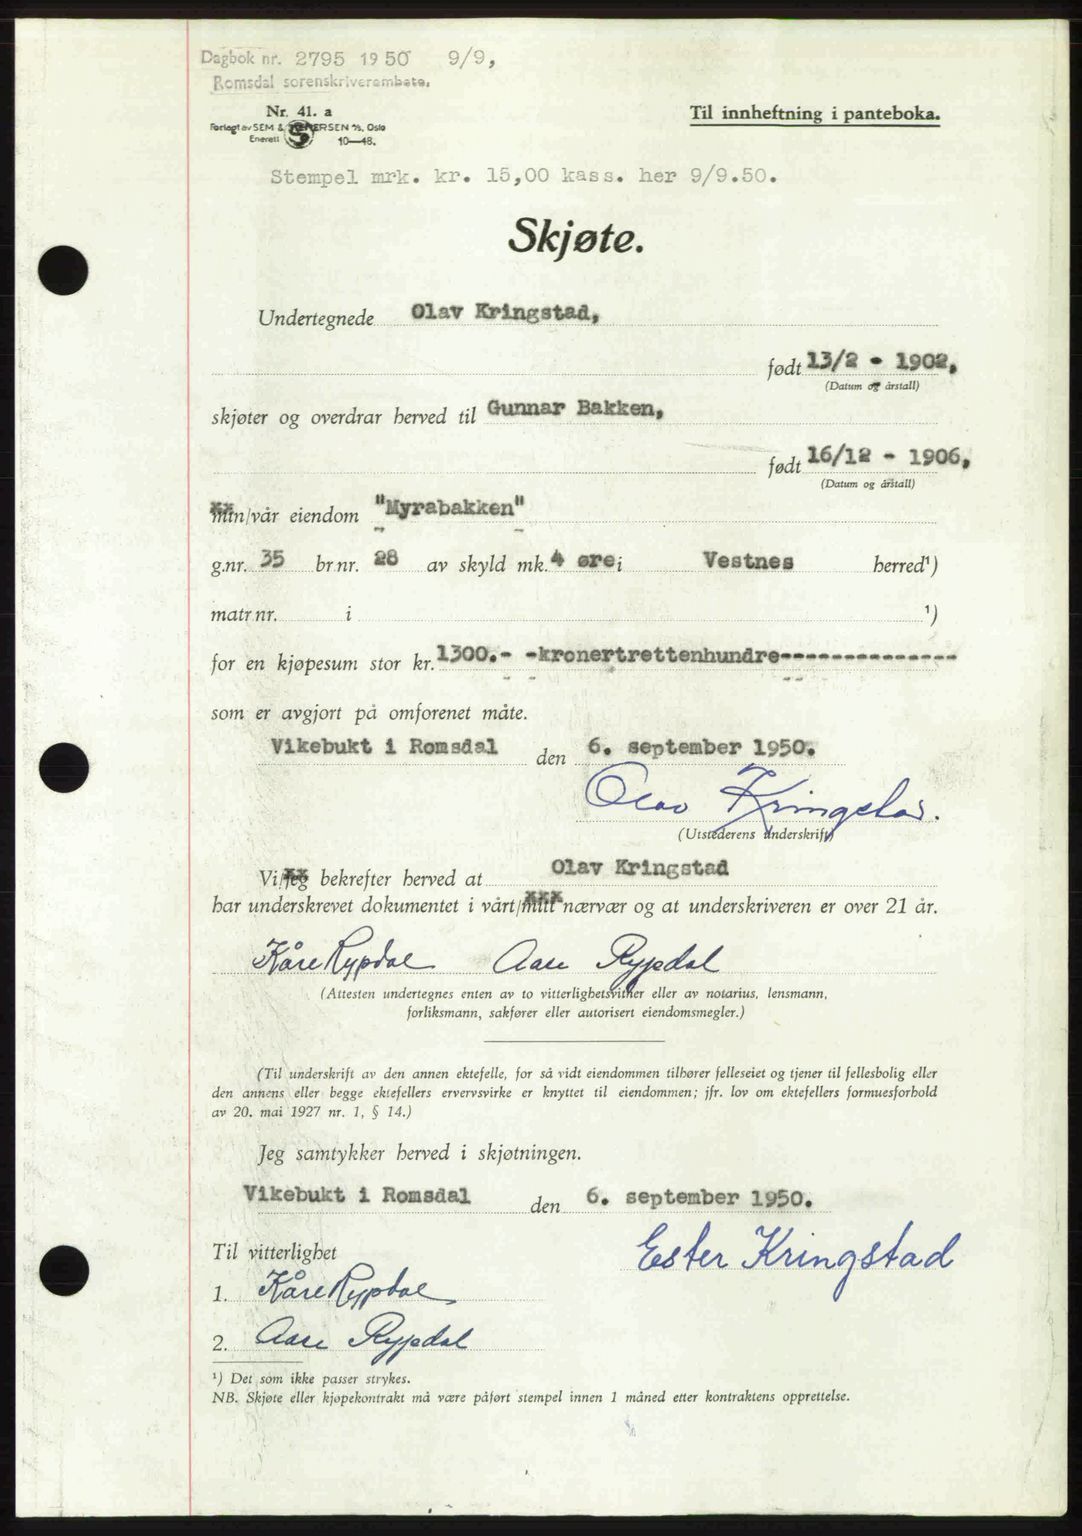 Dagbok nr. 2795 1950 9/9,
Romsdal sorenskriverembete.
Nr. 41. a
Forlagt av SEM & STENERSEN A/S, Oslo
Enerett 10—48.
Til innheftning i panteboka.
Stempel mrk. kr. 15,00 kass. her 9/9.50.
Skjøte.
Undertegnede Olav Kringstad,
født 13/2 - 1902,
(Datum og årstall)
skjøter og overdrar herved til Gunnar Bakken,
født 16/12 - 1906,
(Datum og årstall)
min/vår eiendom "Myrabakken"
g.nr. 35 br.nr. 28 av skyld mk. 4 øre i Vestnes herred¹)
matr.nr. i ¹)
for en kjøpesum stor kr. 1300.- -kronertrettenhundre---------------
som er avgjort på omforenet måte.
Vikebukt i Romsdal den 6. september 1950.
Olav Kringstad.
(Utstederens underskrift)
Vi/jeg bekrefter herved at Olav Kringstad
har underskrevet dokumentet i vårt/mitt nærvær og at underskriveren er over 21 år.
Kåre Rypdal Aase Rypdal
(Attesten undertegnes enten av to vitterlighetsvitner eller av notarius, lensmann,
forliksmann, sakfører eller autorisert eiendomsmegler.)
(Til underskrift av den annen ektefelle, for så vidt eiendommen tilhører felleseiet og tjener til fellesbolig eller
den annens eller begge ektefellers ervervsvirke er knyttet til eiendommen; jfr. lov om ektefellers formuesforhold
av 20. mai 1927 nr. 1, § 14.)
Jeg samtykker herved i skjøtningen.
Vikebukt i Romsdal den 6. september 1950.
Til vitterlighet
Ester Kringstad
1. Kåre Rypdal
2. Aase Rypdal
¹) Det som ikke passer strykes.
NB. Skjøte eller kjøpekontrakt må være påført stempel innen 1 måned etter kontraktens opprettelse.